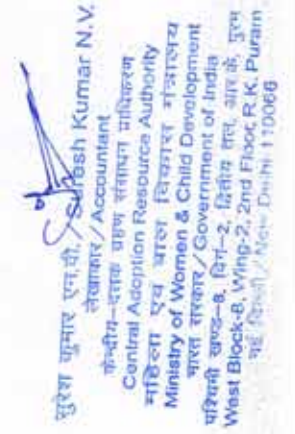 सुरेश कुमार एन.वी. / Suresh Kumar N.V.
लेखाकार / Accountant
केन्द्रीय-दत्तक ग्रहण संसाधन प्राधिकरण
Central Adoption Resource Authority
महिला एवं बाल विकास मंत्रालय
Ministry of Women & Child Development
भारत सरकार / Government of India
पश्चिमी खण्ड-8, विंग-2, द्वितीय तल, आर.के. पुरम
West Block-8, Wing-2, 2nd Floor, R.K. Puram
नई दिल्ली / New Delhi-110066